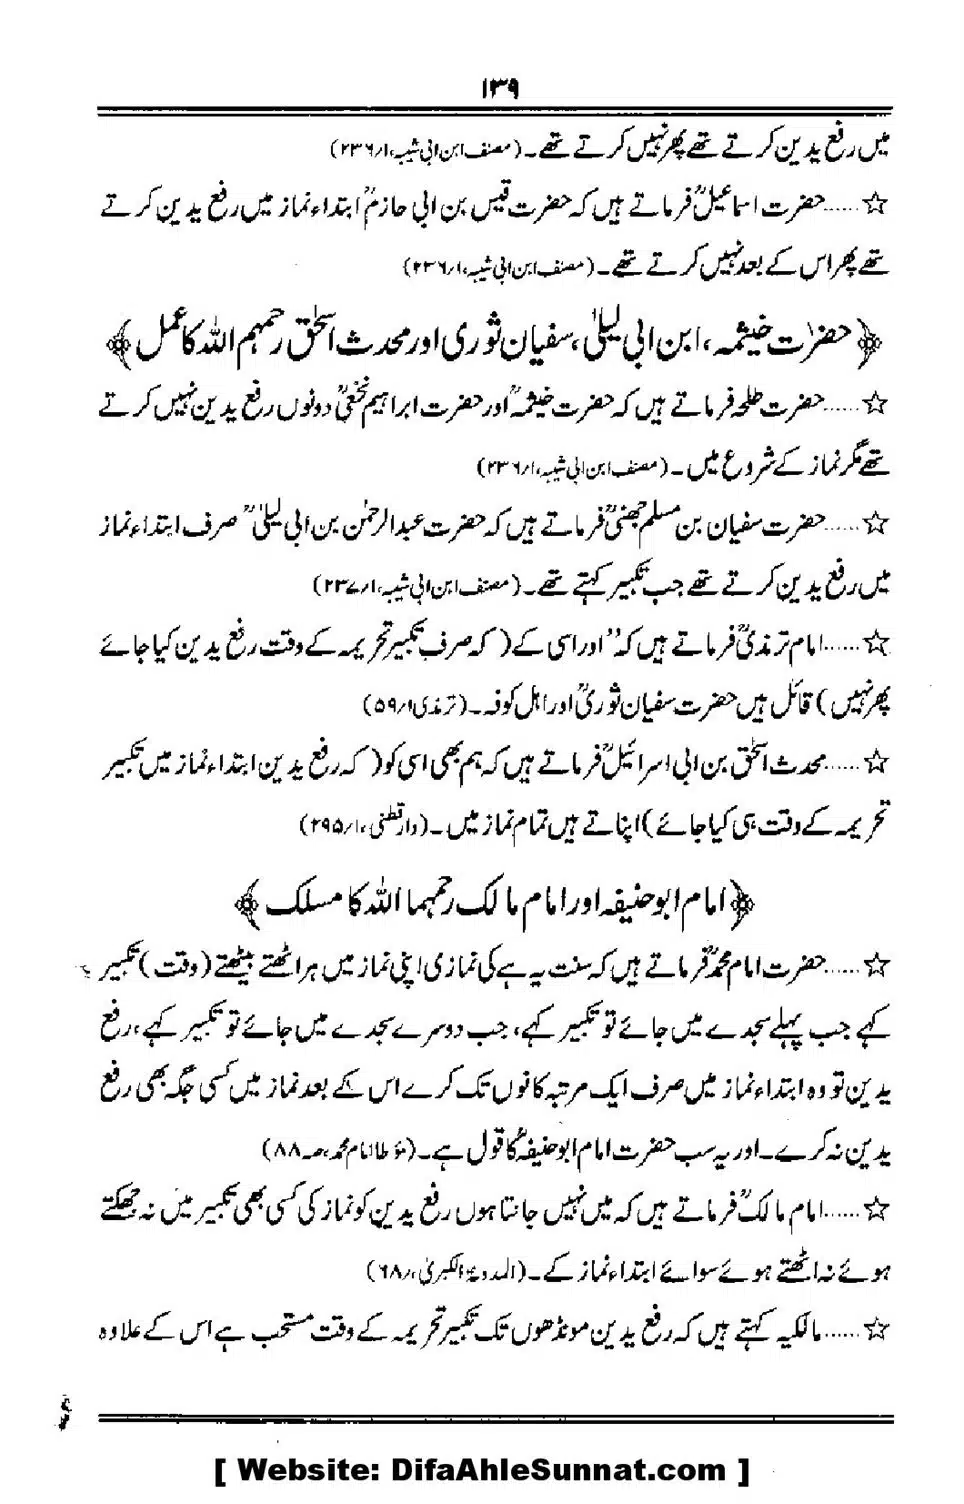 ۱۳۹
میں رفع یدین کرتے تھے پھر نہیں کرتے تھے۔ (مصنف ابن ابی شیبہ،۱؍۲۳۶)
☆......حضرت اسماعیلؒ فرماتے ہیں کہ حضرت قیس بن ابی حازمؒ ابتداء نماز میں رفع یدین کرتے
تھے پھر اس کے بعد نہیں کرتے تھے۔ (مصنف ابن ابی شیبہ،۱؍۲۳۶)
﴿حضرت خیثمہ، ابن ابی لیلیٰ، سفیان ثوری اور محدث اسحٰق رحمہم اللہ کا عمل﴾
☆......حضرت طلحہ فرماتے ہیں کہ حضرت خیثمہؒ اور حضرت ابراہیم نخعیؒ دونوں رفع یدین نہیں کرتے
تھے مگر نماز کے شروع میں۔ (مصنف ابن ابی شیبہ،۱؍۲۳۶)
☆......حضرت سفیان بن مسلم جہنیؒ فرماتے ہیں کہ حضرت عبدالرحمٰن بن ابی لیلیٰؒ صرف ابتداء نماز
میں رفع یدین کرتے تھے جب تکبیر کہتے تھے۔ (مصنف ابن ابی شیبہ،۱؍۲۳۷)
☆......امام ترمذیؒ فرماتے ہیں کہ ”اور اسی کے (کہ صرف تکبیر تحریمہ کے وقت رفع یدین کیا جائے
پھر نہیں) قائل ہیں حضرت سفیان ثوریؒ اور اہل کوفہ۔ (ترمذی ۱؍۵۹)
☆......محدث اسحٰق بن ابی اسرائیلؒ فرماتے ہیں کہ ہم بھی اسی کو (کہ رفع یدین ابتداء نماز میں تکبیر
تحریمہ کے وقت ہی کیا جائے) اپناتے ہیں تمام نماز میں۔ (دارقطنی،۱؍۲۹۵)
﴿امام ابوحنیفہ اور امام مالک رحمہما اللہ کا مسلک﴾
☆......حضرت امام محمدؒ فرماتے ہیں کہ سنت یہ ہے کی نمازی اپنی نماز میں ہر اٹھتے بیٹھتے (وقت) تکبیر
کہے جب پہلے سجدے میں جائے تو تکبیر کہے، جب دوسرے سجدے میں جائے تو تکبیر کہے، رفع
یدین تو وہ ابتداء نماز میں صرف ایک مرتبہ کانوں تک کرے اس کے بعد نماز میں کسی جگہ بھی رفع
یدین نہ کرے۔ اور یہ سب حضرت امام ابوحنیفہؒ کا قول ہے۔ (مؤطا امام محمد،صـ۸۸)
☆......امام مالکؒ فرماتے ہیں کہ میں نہیں جانتا ہوں رفع یدین کو نماز کی کسی بھی تکبیر میں نہ جھکتے
ہوئے نہ اٹھتے ہوئے سوائے ابتداء نماز کے۔ (المدونۃ الکبریٰ،؍۶۸)
☆......مالکیہ کہتے ہیں کہ رفع یدین مونڈھوں تک تکبیر تحریمہ کے وقت مستحب ہے اس کے علاوہ
[ Website: DifaAhleSunnat.com ]